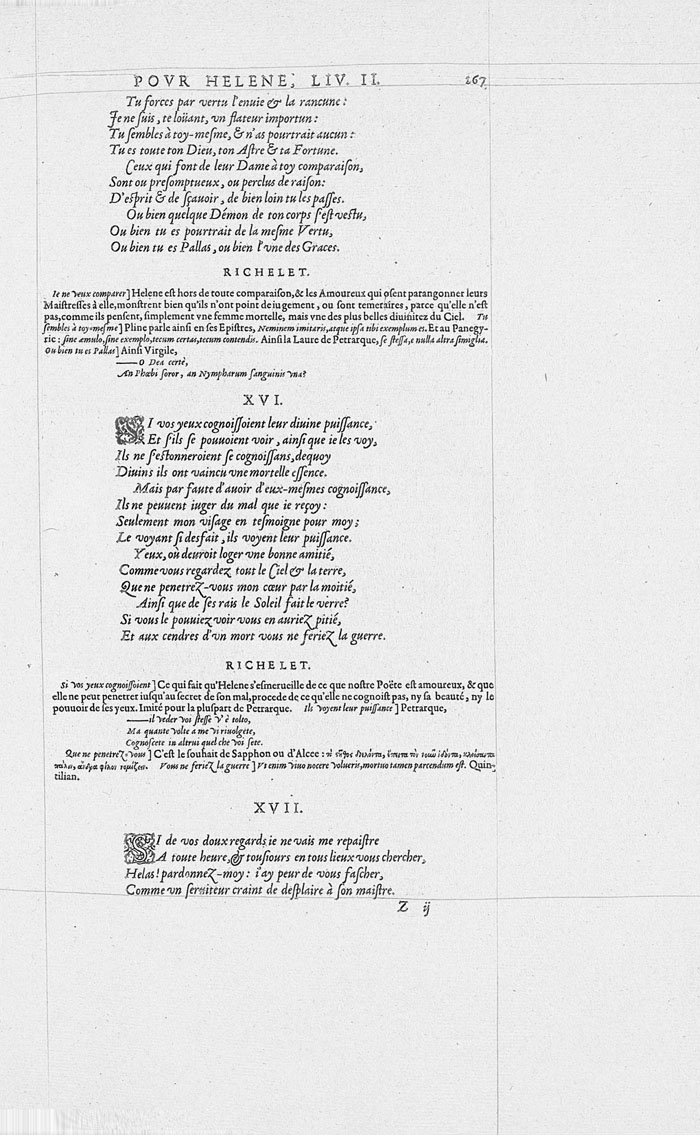 POVR HELENE, LIV. II. 267
Tu forces par vertu l'enuie & la rancune :
Je ne ſuis, te loüant, vn flateur importun :
Tu ſembles à toy-meſme, & n'as pourtrait aucun :
Tu es toute ton Dieu, ton Aſtre & ta Fortune.
Ceux qui font de leur Dame à toy comparaiſon,
Sont ou preſomptueux, ou perclus de raiſon:
D'eſprit & de ſçauoir, de bien loin tu les paſſes.
Ou bien quelque Démon de ton corps s'eſt veſtu,
Ou bien tu es pourtrait de la meſme Vertu,
Ou bien tu es Pallas, ou bien l'vne des Graces.
RICHELET.
Ie ne veux comparer] Helene eſt hors de toute comparaiſon, & les Amoureux qui oſent parangonner leurs
Maiſtreſſes à elle, monſtrent bien qu'ils n'ont point de iugement, ou ſont temeraires, parce qu'elle n'eſt
pas, comme ils penſent, ſimplement vne femme mortelle, mais vne des plus belles diuinitez du Ciel. Tu
ſembles à toy-meſme] Pline parle ainſi en ſes Epiſtres, Neminem imitaris, atque ipſa tibi exemplum es. Et au Panegy-
ric : ſine æmulo, ſine exemplo, tecum certas, tecum contendis. Ainſi la Laure de Petrarque, ſe ſteſſa, e nulla altra ſimiglia.
Ou bien tu es Pallas] Ainſi Virgile,
——O Dea certè,
An Phœbi ſoror, an Nympharum ſanguinis vna?
XVI.
SI vos yeux cognoiſſoient leur diuine puiſſance,
Et s'ils ſe pouuoient voir, ainſi que ie les voy,
Ils ne s'eſtonneroient ſe cognoiſſans, dequoy
Diuins ils ont vaincu vne mortelle eſſence.
Mais par faute d'auoir d'eux-meſmes cognoiſſance,
Ils ne peuuent iuger du mal que ie reçoy :
Seulement mon viſage en teſmoigne pour moy ;
Le voyant ſi desfait, ils voyent leur puiſſance.
Yeux, où deuroit loger vne bonne amitié,
Comme vous regardez tout le Ciel & la terre,
Que ne penetrez-vous mon cœur par la moitié,
Ainſi que de ſes rais le Soleil fait le verre?
Si vous le pouuiez voir vous en auriez pitié,
Et aux cendres d'vn mort vous ne feriez la guerre.
RICHELET.
Si vos yeux cognoiſſoient] Ce qui fait qu'Helene s'eſmerueille de ce que noſtre Poëte eſt amoureux, & que
elle ne peut penetrer iuſqu'au ſecret de ſon mal, procede de ce qu'elle ne cognoiſt pas, ny ſa beauté, ny le
pouuoir de ſes yeux. Imité pour la pluſpart de Petrarque. Ils voyent leur puiſſance] Petrarque,
——il veder voi ſteſſe v'è tolto,
Ma quante volte a me vi riuolgete,
Cognoſcete in altrui quel che voi ſete.
Que ne penetrez-vous] C'eſt le ſouhait de Sapphon ou d'Alcee :
Vous ne feriez la guerre] Vt enim viuo nocere volueris, mortuo tamen parcendum eſt. Quin-
tilian.
XVII.
SI de vos doux regards ie ne vais me repaiſtre
A toute heure, & touſiours en tous lieux vous chercher,
Helas! pardonnez-moy : i'ay peur de vous faſcher,
Comme vn ſeruiteur craint de deſplaire à ſon maiſtre.
Z ij